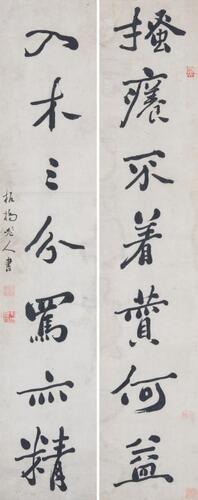 搔癢不着贊何益
入木三分罵亦精
板橋老人書